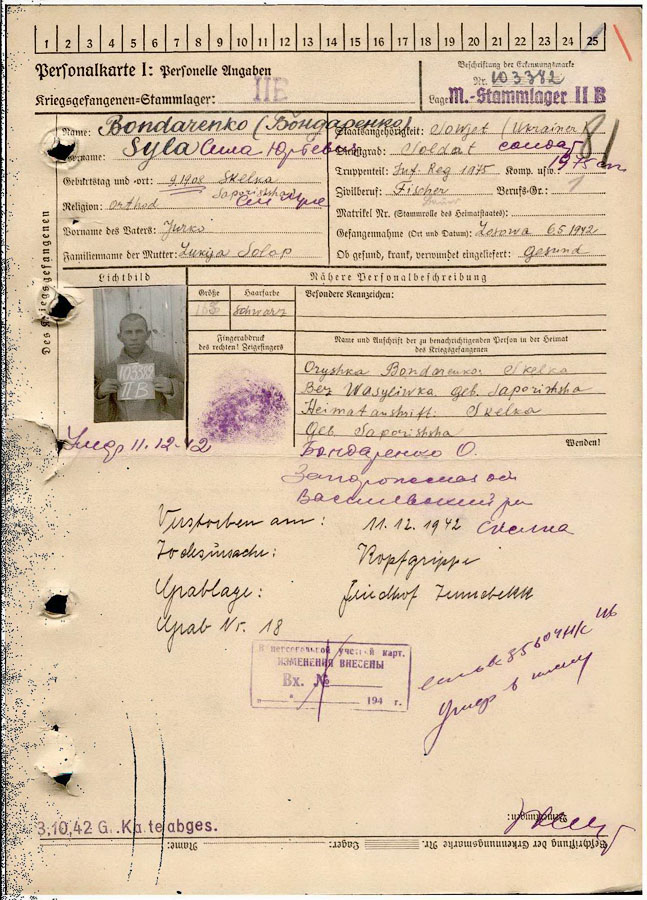 1 2 3 4 5 6 7 8 9 10 11 12 13 14 15 16 17 18 19 20 21 22 23 24 25
Personalkarte I: Personelle Angaben
Kriegsgefangenen=Stammlager: IIB
Beschriftung der Erkennungsmarke
Nr. 103382
Lager: M.-Stammlager II B
Des Kriegsgefangenen
Name: Bondarenko (Бондаренко)
Vorname: Syla Сила Юрьевич
Geburtstag und -ort: 9.1908 Skelka
Saporishsha
Religion: Orthod
Vorname des Vaters: Jurko
Familienname der Mutter: Lukija Solop
Staatsangehörigkeit: Sowjet (Ukrainer
Dienstgrad: Soldat солдат
81
Truppenteil: Inf. Reg 1975 Komp. usw.: 1975
Zivilberuf: Fischer Berufs-Gr.: 1
Matrikel Nr. (Stammrolle des Heimatstaates):
Gefangennahme (Ort und Datum): 6 5 1942
Ob gesund, krank, verwundet eingeliefert: gesund
Lichtbild
103382
II B
Nähere Personalbeschreibung
Größe
Haarfarbe
Schwarz
Besondere Kennzeichen:
Fingerabdruck
des rechten! Zeigefingers
Name und Anschrift der zu benachrichtigenden Person in der Heimat
des Kriegsgefangenen
Oryshka Bondarenko Skelka
Bez Wasyliwka Geb. Saporishsha
Heimatanshrift: Skelka
Geb. Saporishsha
Wenden!
Умер 11.12.42
Бондаренко О.
Запорожская об
Васильевский р
Скелка
Verstorben am: 11.12.1942
Todesursache: Kopfgrippe
Grablage: Friedhof
Grab Nr. 18
В персональной учетной карт.
ИЗМЕНЕНИЯ ВНЕСЕНЫ
Вх. №
„ “ 194 г.
умер в плену
3,10,42 G. Karte abges.
Bemerkungen:
Beschriftung der Erkennungsmarke Nr. Lager: Name: